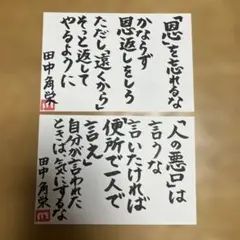 「恩」を忘れるな
かならず
恩返しをしろ
ただし「遠くから」
そっと返して
やるように
田中角栄
「人の悪口」は
言うな
言いたければ
便所で一人で
言え
自分が言われた
ときは、気にするな
田中角栄